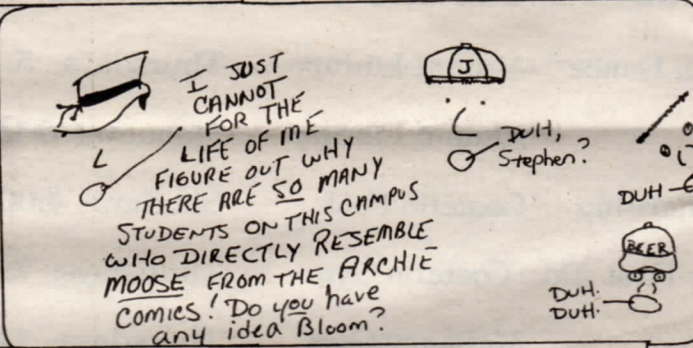 I JUST
CANNOT
FOR THE
LIFE OF ME
FIGURE OUT WHY
THERE ARE SO MANY
STUDENTS ON THIS CAMPUS
WHO DIRECTLY RESEMBLE
MOOSE FROM THE ARCHIE
COMICS! Do you have
any idea Bloom?
J
DUH,
Stephen?
DUH
BEER
DUH.
DUH.